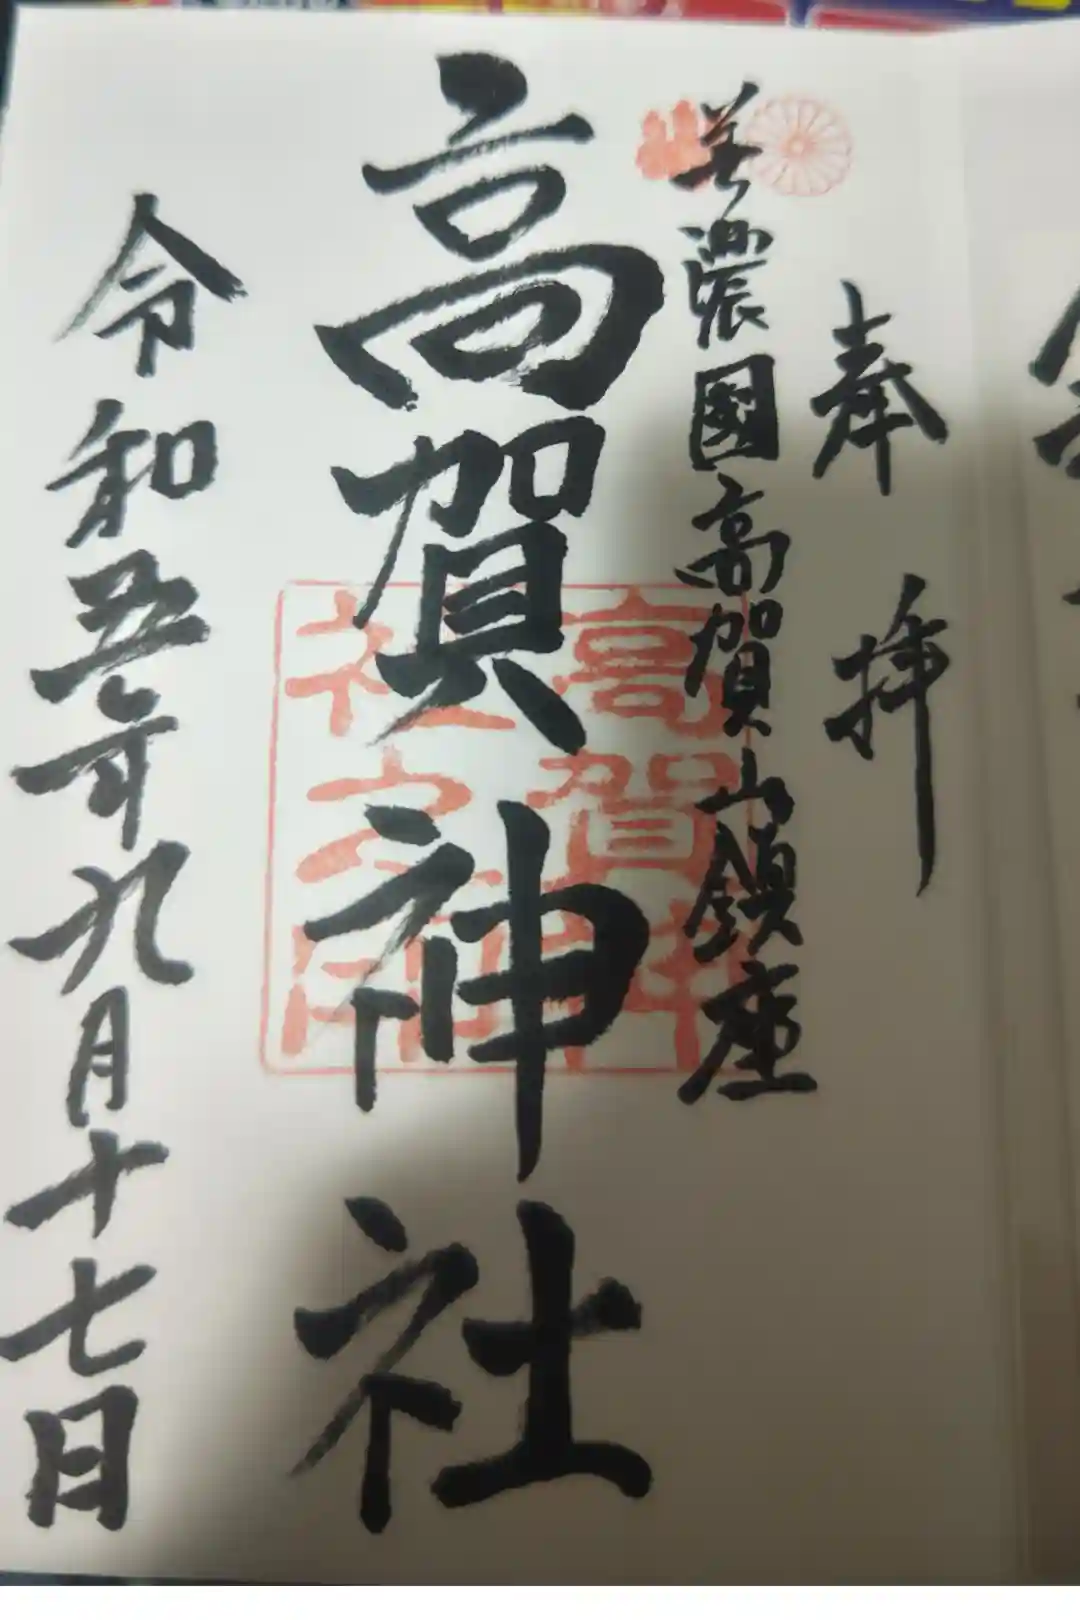 奉拝
美濃國高賀山鎮座
高賀神社
高賀神社之印
令和五年九月十七日